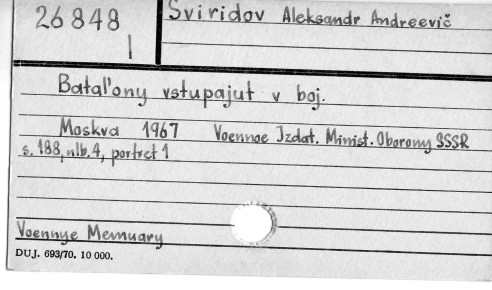 26848
1
Sviridov Aleksandr Andreevič
Batal'ony vstupajut v boj.
Moskva 1967 Voennoe Izdat. Minist. Oborony SSSR
s. 188, nlb. 4, portret 1
Voennye Memuary
DUJ. 693/70. 10 000.